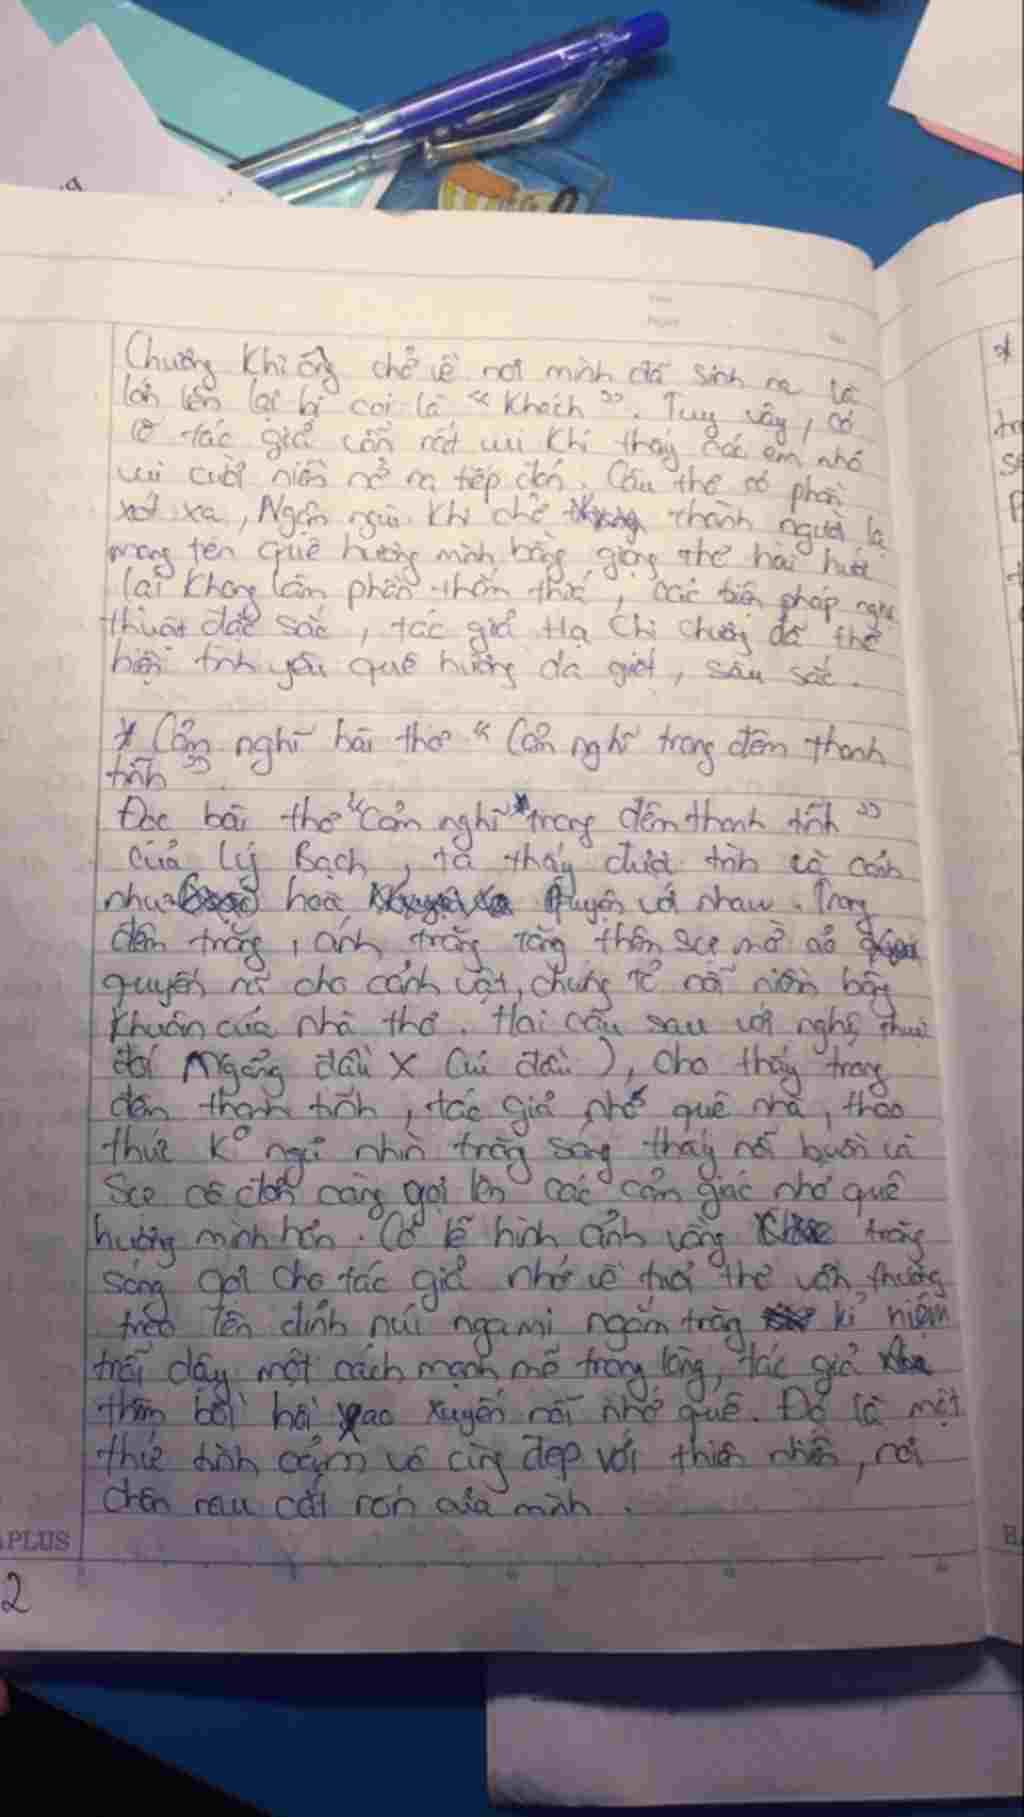 Chương khi ông trở về nơi mình đã sinh ra và
lớn lên lại bị coi là "khách". Tuy vậy, có
lẽ tác giả vẫn rất vui khi thấy các em nhỏ
vui cười niềm nở ra tiếp đón. Câu thơ có phần
xót xa, Ngậm ngùi khi trở thành người lạ
mang tên quê hương mình bằng giọng thơ hài hước
lại không lấn phần thổn thức, các biện pháp nghệ
thuật đặc sắc, tác giả Hạ Chi Chương đã thể
hiện tình yêu quê hương da giết, sâu sắc.
* Cảm nghĩ bài thơ "Cảm nghĩ trong đêm thanh
tĩnh"
Đọc bài thơ "Cảm nghĩ trong đêm thanh tĩnh"
của Lý Bạch, ta thấy được tình và cảnh
như hoà quyện với nhau. Trong
đêm trăng, ánh trăng thêm sự mờ ảo
quyến rũ cho cảnh vật, chứng tỏ nỗi niềm bâng
khuâng của nhà thơ. Hai câu sau với nghệ thuật
đối Ngẩng đầu X Cúi đầu), cho thấy trong
đêm thanh tĩnh, tác giả nhớ quê nhà, thao
thức k° ngủ nhìn trăng sáng thấy nỗi buồn và
sự cô đơn càng gợi lên các cảm giác nhớ quê
hương mình hơn. Có lẽ hình ảnh vầng trăng
sáng gợi cho tác giả nhớ về tuổi thơ vẫn thường
trèo lên đỉnh núi nga mi ngắm trăng kỉ niệm
trỗi dậy một cách mạnh mẽ trong lòng, tác giả
thêm bồi hồi xao xuyến nỗi nhớ quê. Đó là một
thứ tình cảm vô cùng đẹp với thiên nhiên, nơi
chôn rau cắt rốn của mình.
PLUS
2